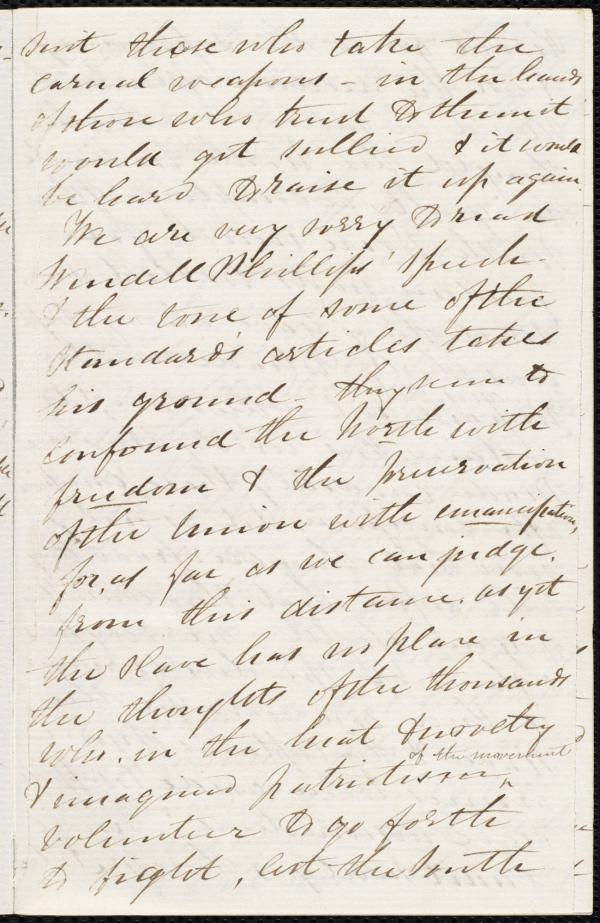 sent those who take the
carnal weapons - in the hands
of those who trust to them it
would get sullied & it would
be hard to raise it up again.
We are very sorry to read
Wendell Phillips' speech -
& the tone of some of the
Standard's articles takes
his ground - they seem to
confound the North with
freedom & the preservation
of the Union with emancipation,
for, as far as we can judge,
from this distance, as yet
the slave has no place in
the thoughts of the thousands
who, in the heat & novelty
of the movement
& imagined patriotism,
volunteer to go forth
to fight, lest the South